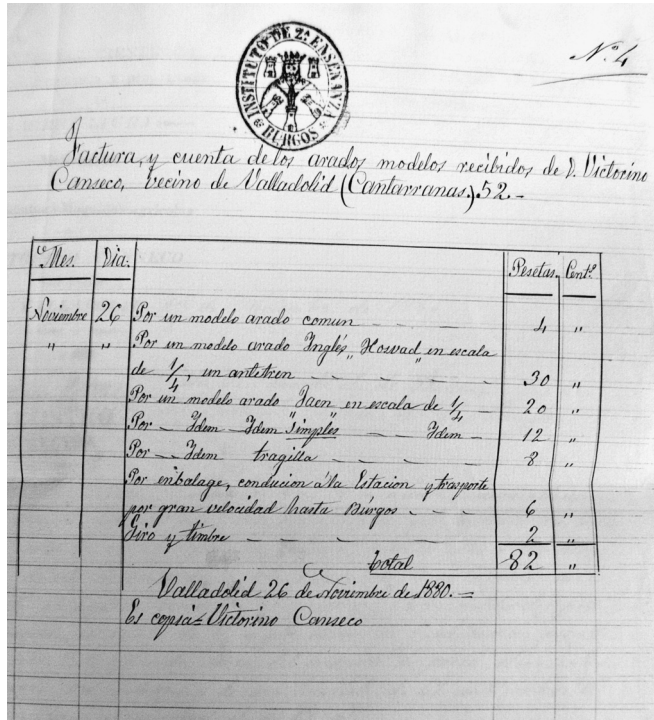 INSTITUTO DE 2ª ENSEÑANZA
BURGOS
N.º 4
Factura, y cuenta de los arados modelos recibidos de D. Victorino
Canseco, vecino de Valladolid (Cantarranas.) 52.-
Mes. Dia. Pesetas. Cent.s
Noviembre 26 Por un modelo arado comun 4 "
" " Por un modelo arado Inglés "Howad" en escala
de 1/4, un antetren 30 "
Por un modelo arado "Jaen" en escala de 1/4 20 "
Por - Idem - Idem "Simples" - Idem - 12 "
Por - Idem tragilla 8 "
Por enbalage, conducion á la Estacion y trasporte
por gran velocidad hasta Búrgos 6 "
Giro y timbre 2 "
total 82 "
Valladolid 26 de Noviembre de 1880.=
Es copia= Victorino Canseco